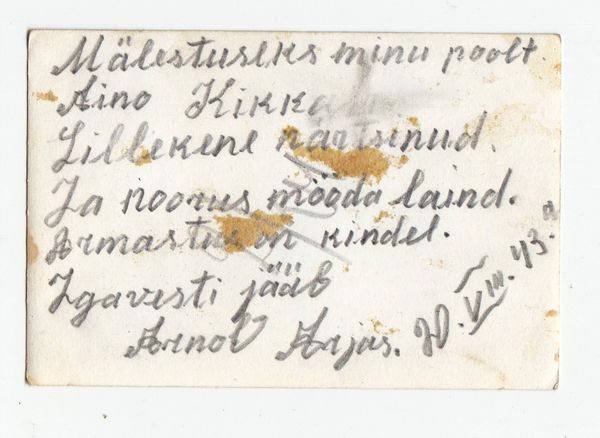 Mälestuseks minu poolt.
Aino Kikka
Lillekene närtsinud.
Ja noorus mööda laind.
Armastus on kindel.
Igavesti jääb
Arnold Arjas. 20.VIII.43.a